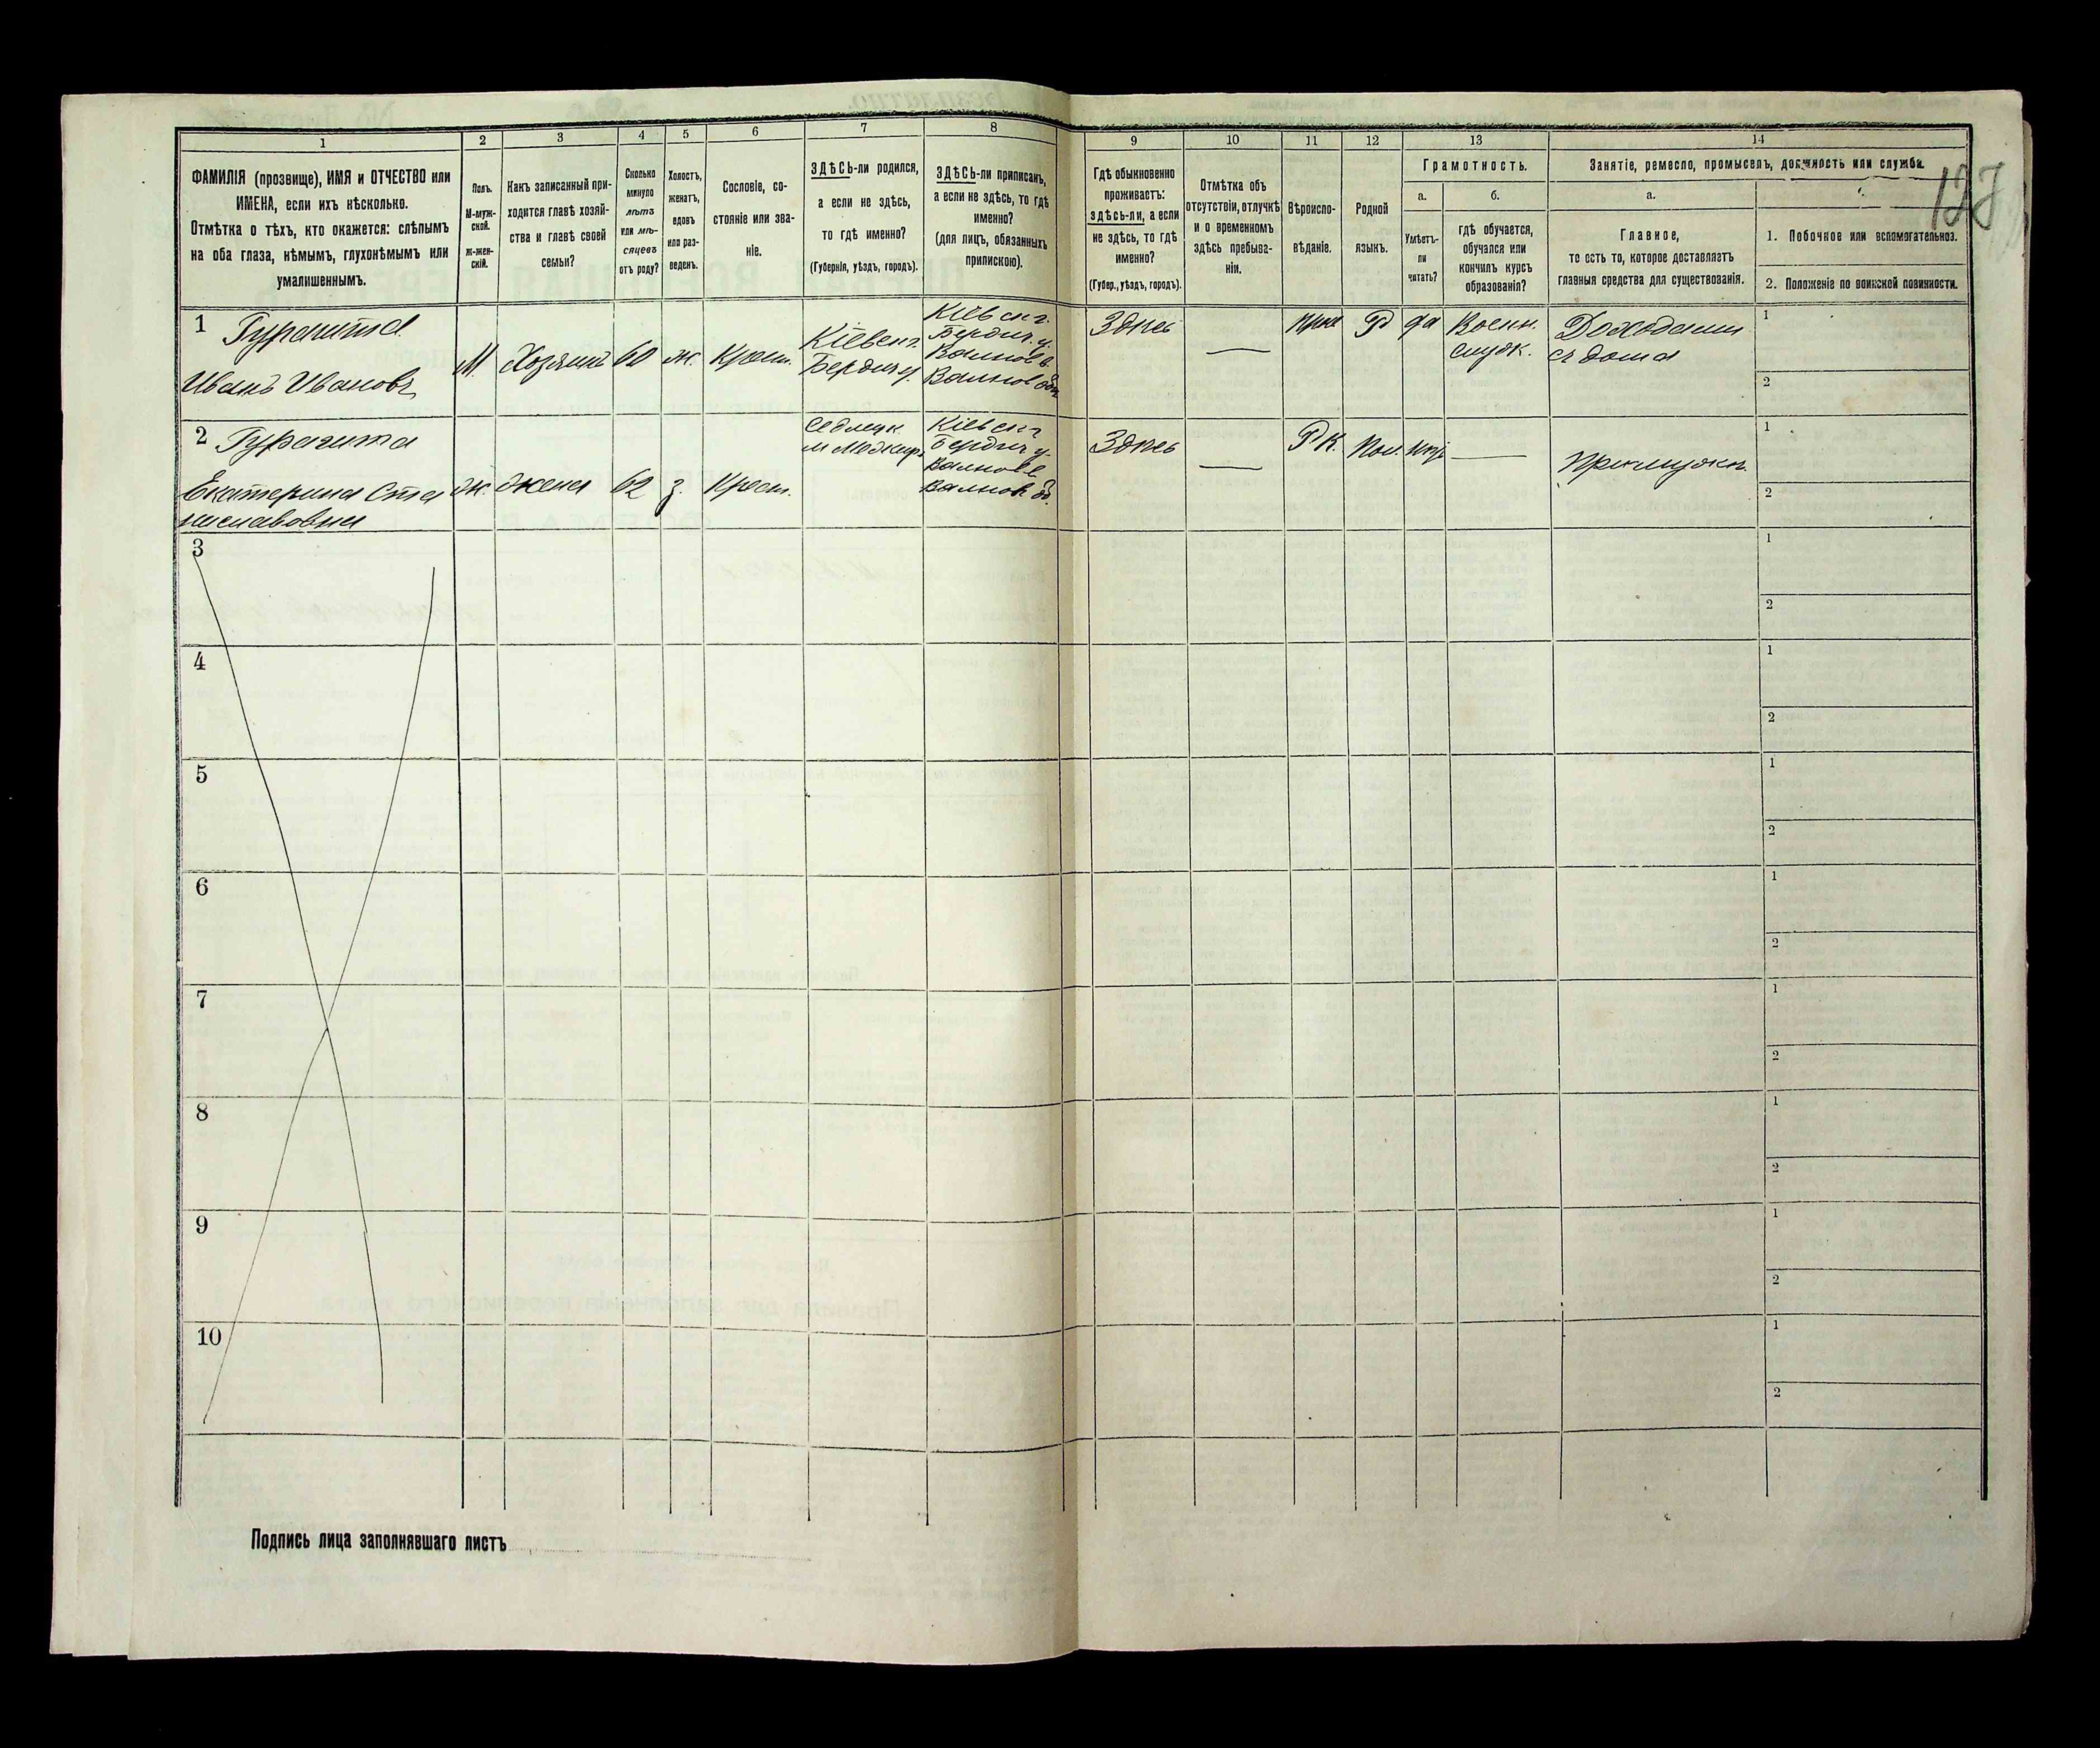 1
2
3
4
5
6
7
8
9
10
11
12
13
14
ФАМИЛІЯ (прозвище), ИМЯ и ОТЧЕСТВО или
ИМЕНА, если ихъ нѣсколько.
Отмѣтка о тѣхъ, кто окажется: слѣпымъ
на оба глаза, нѣмымъ, глухонѣмымъ или
умалишеннымъ.
Полъ.
М-муж-
ской.
ж-жен-
скій.
Какъ записанный при-
ходится главѣ хозяй-
ства и главѣ своей
семьи?
Сколько
минуло
лѣтъ
или мѣ-
сяцевъ
отъ роду?
Холостъ,
женатъ,
вдовъ
или раз-
веденъ.
Сословіе, со-
стояніе или зва-
ніе.
ЗДѢСЬ-ли родился,
а если не здѣсь,
то гдѣ именно?
(Губернія, уѣздъ, городъ).
ЗДѢСЬ-ли приписанъ,
а если не здѣсь, то гдѣ
именно?
(для лицъ, обязанныхъ
припискою).
Гдѣ обыкновенно
проживаетъ:
здѣсь-ли, а если
не здѣсь, то гдѣ
именно?
(Губер., уѣздъ, городъ).
Отмѣтка объ
отсутствіи, отлучкѣ
и о временномъ
здѣсь пребыва-
ніи.
Вѣроиспо-
вѣданіе.
Родной
языкъ.
Грамотность.
а.
б.
Умѣетъ-
ли
читать?
гдѣ обучается,
обучался или
кончилъ курсъ
образованія?
Занятіе, ремесло, промыселъ, должность или служба.
а.
Главное,
то есть то, которое доставляетъ
главныя средства для существованія.
1. Побочное или вспомогательноз.
2. Положеніе по воинской повинности.
1
Иванъ Ивановъ
М.
Хозяинъ
60
ж.
Крест.
Кіевск г.
Бердич у.
Кіевск г.
Бердич у.
Здѣсь
—
Р
да
Военн.
служ.
Доходами
съ дома
1
2
2
Екатерина Ста
ниславовна
Ж.
жена
62
з.
Крест.
Седлецк.
Кіевск г
Бердич у.
Здѣсь
—
Р К.
Пол.
—
1
2
3
1
2
4
1
2
5
1
2
6
1
2
7
1
2
8
1
2
9
1
2
10
1
2
Подпись лица заполнявшаго листъ